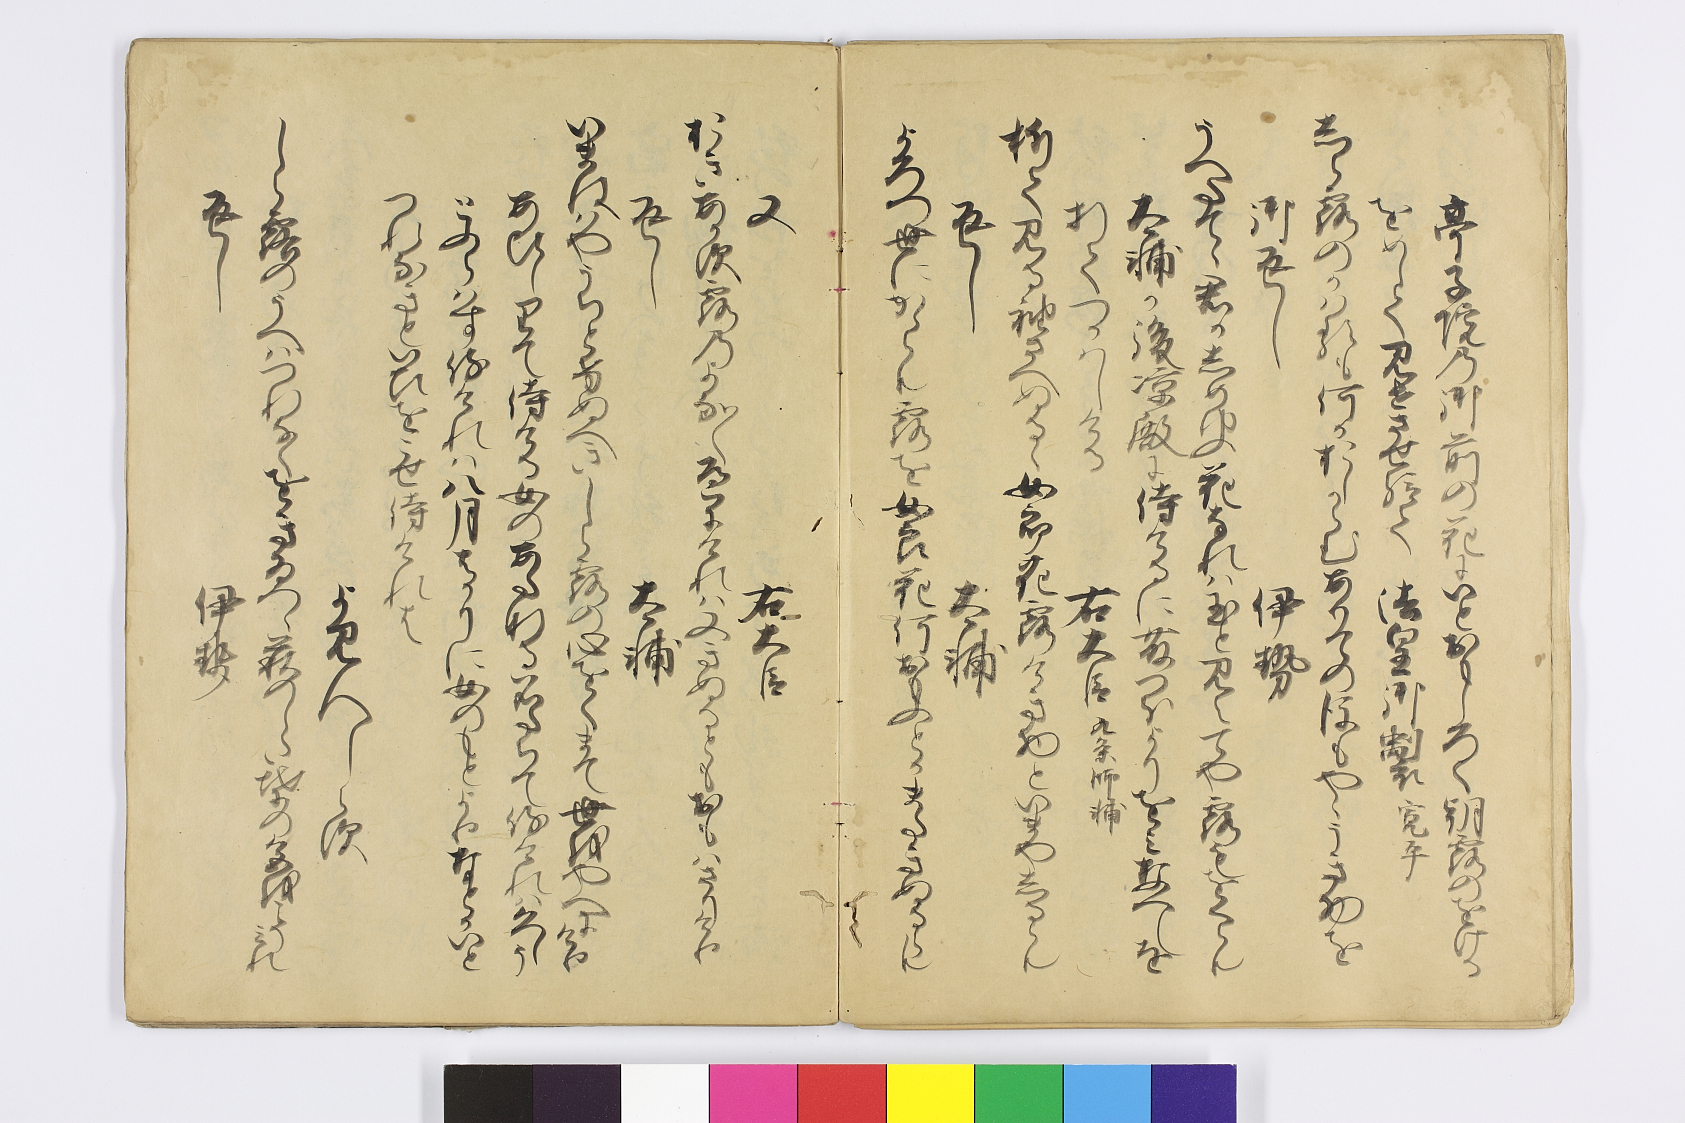 亭子院乃御前の花はいとおもしろく朝露のをける
をめしてみせさせ給て　法皇御製 寛平
しら露のかはるも何かおしからむありてのゝ後もやゝうき物を
御返し　伊勢
うへたてゝ君かしめゆふ花なれは玉と見えてや露もをくらん
大輔か後涼殿に侍けるに藤つほよりをみなへしを
おりてつかはしける　右大臣 九条師輔
折て見る袖さへぬるゝ女郎花露けき物といまやしるらん
返し　大輔
よろつ世にかゝらん露を女郎花何おもふとかまたきぬるらん
又　右大臣
おきあかす露乃よな〱へにけれは又きぬるともおもはさりけり
返し　大輔
いまははやうちとけぬへきしら露の心をくまて世をやへにける
あひしりて侍ける女のあたなたちて侍けれは久しう
とふらはす侍けれは八月はかりに女のもとよりなとかいと
つれなきといひをこせ侍けれは
よみ人しらす
しら露のうへはつれなくをきゐつゝ萩のした葉の色をこそみれ
返し　伊勢